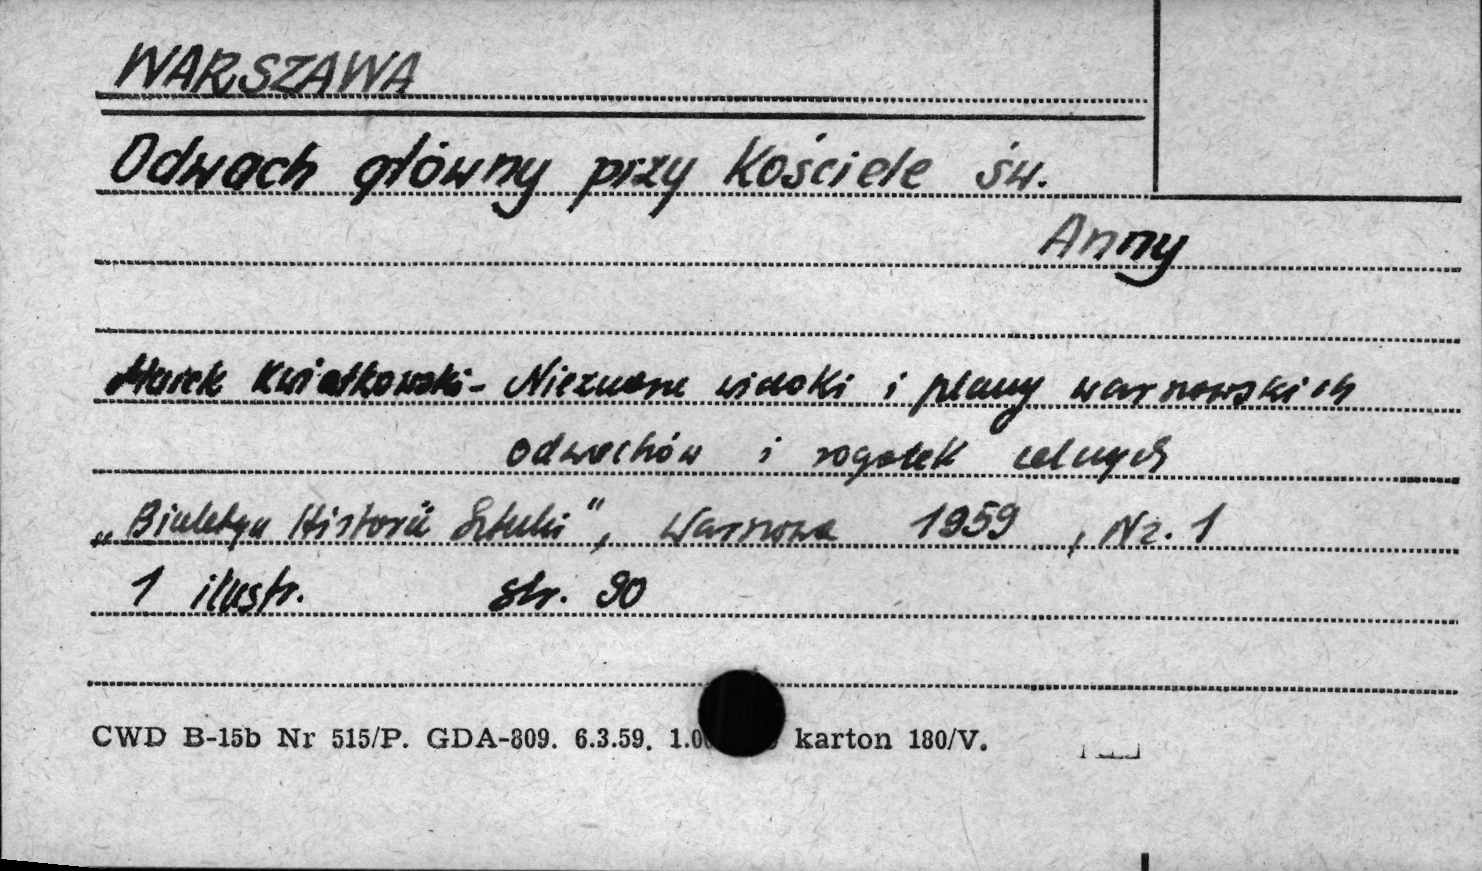 WARSZAWA
Odwach główny przy Kościele św.
Anny
Marek Kwiatkowski - Nieznane widoki i plany warszawskich
odwachów i rogatek celnych
„Biuletyn Historii Sztuki", Warszawa 1959, Nr. 1
1 ilustr. str. 90
CWD B-15b Nr 515/P. GDA-809. 6.3.59. karton 180/V.